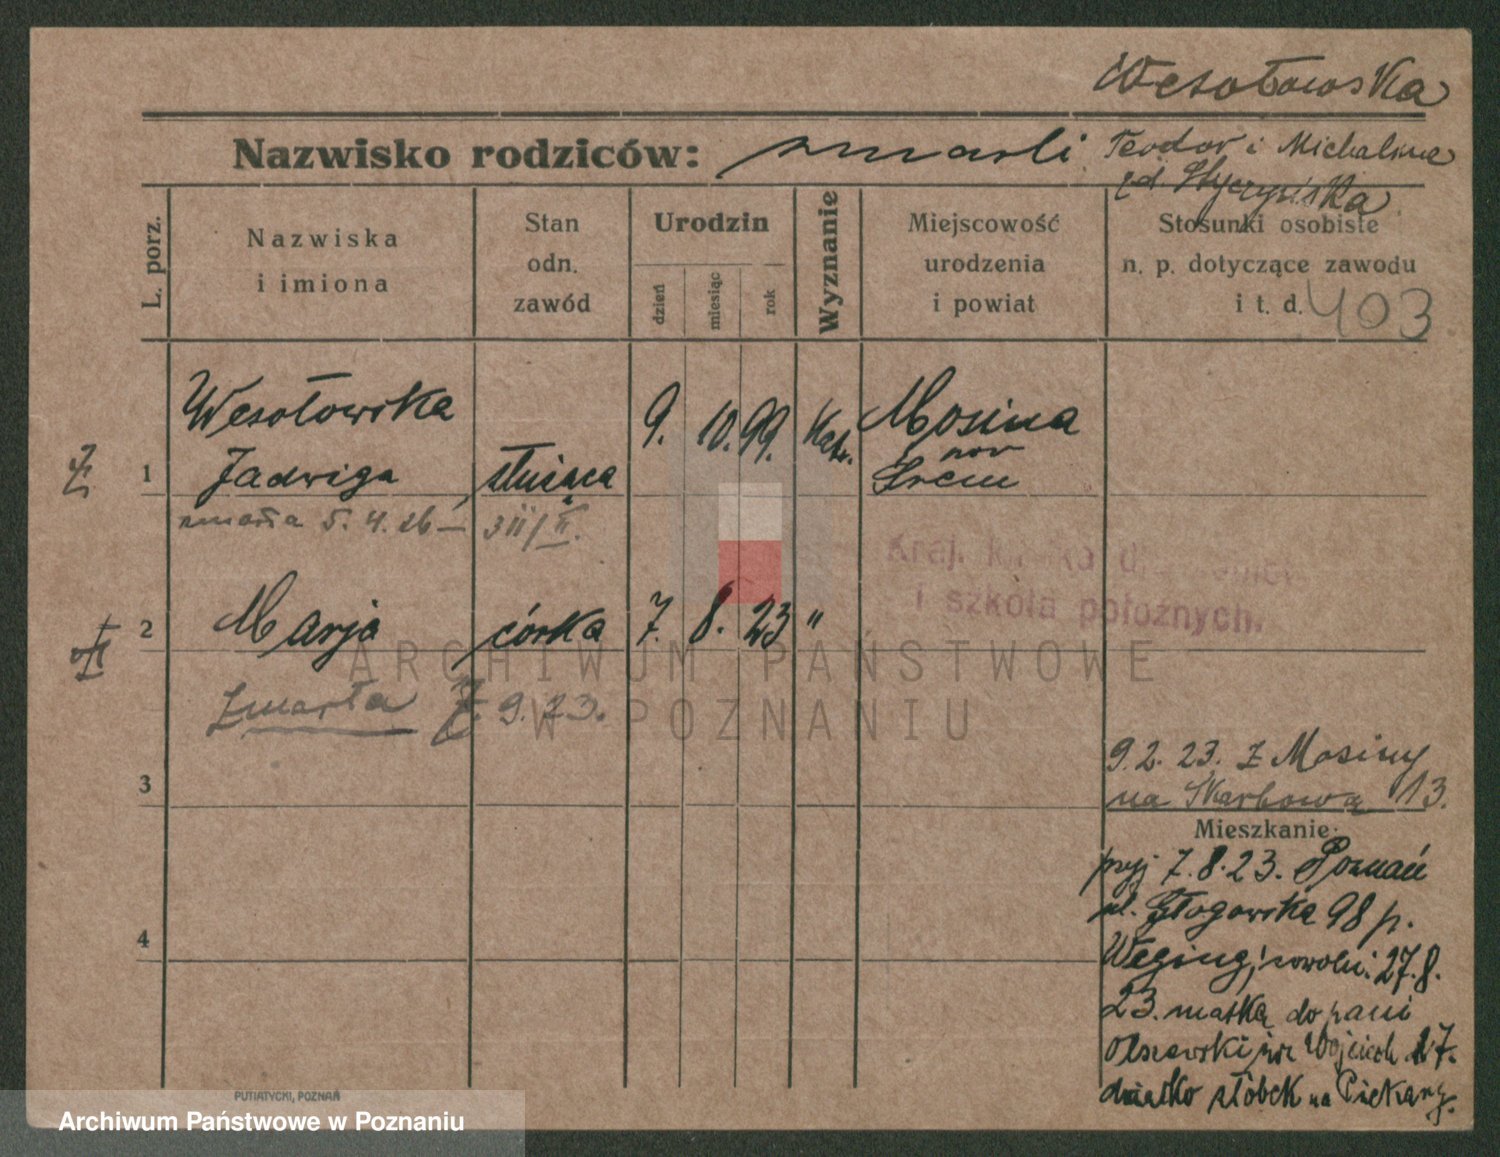 Wesołowska
Nazwisko rodziców: zmarli Teodor i Michalina
zd. Styczyńska
L. porz.
Nazwiska
i imiona
Stan
odn.
zawód
Urodzin
dzień
miesiąc
rok
Wyznanie
Miejscowość
urodzenia
i powiat
Stosunki osobiste
n. p. dotyczące zawodu
i t. d. 403
1 Wesołowska 9. 10. 99. Kat. Mosina
Jadwiga służąca pow Śrem
zmarła 5. 4. 26
Kraj.
i szkoła położnych.
2 Marja córka 7. 8. 23 "
zmarła 7. 9. 23.
ARCHIWUM PAŃSTWOWE
W POZNANIU
3
9. 2. 23. z Mosiny
na Skarbową 13.
Mieszkanie:
przyj 7. 8. 23. Poznań
ul. Głogowska 98 p.
27. 8.
23. matka do pani
Olszewski
4
dziatko żłóbek na Piekary.
PUTIATYCKI, POZNAŃ
Archiwum Państwowe w Poznaniu